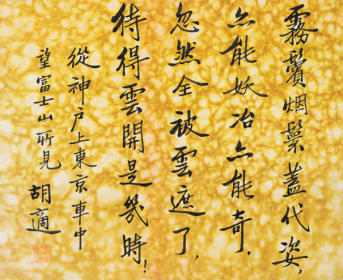 霧鬢烟鬟蓋代姿，
亦能妖冶亦能奇，
忽然全被雲遮了，
待得雲開是幾時！
從神户上東京車中
望富士山所見 胡適